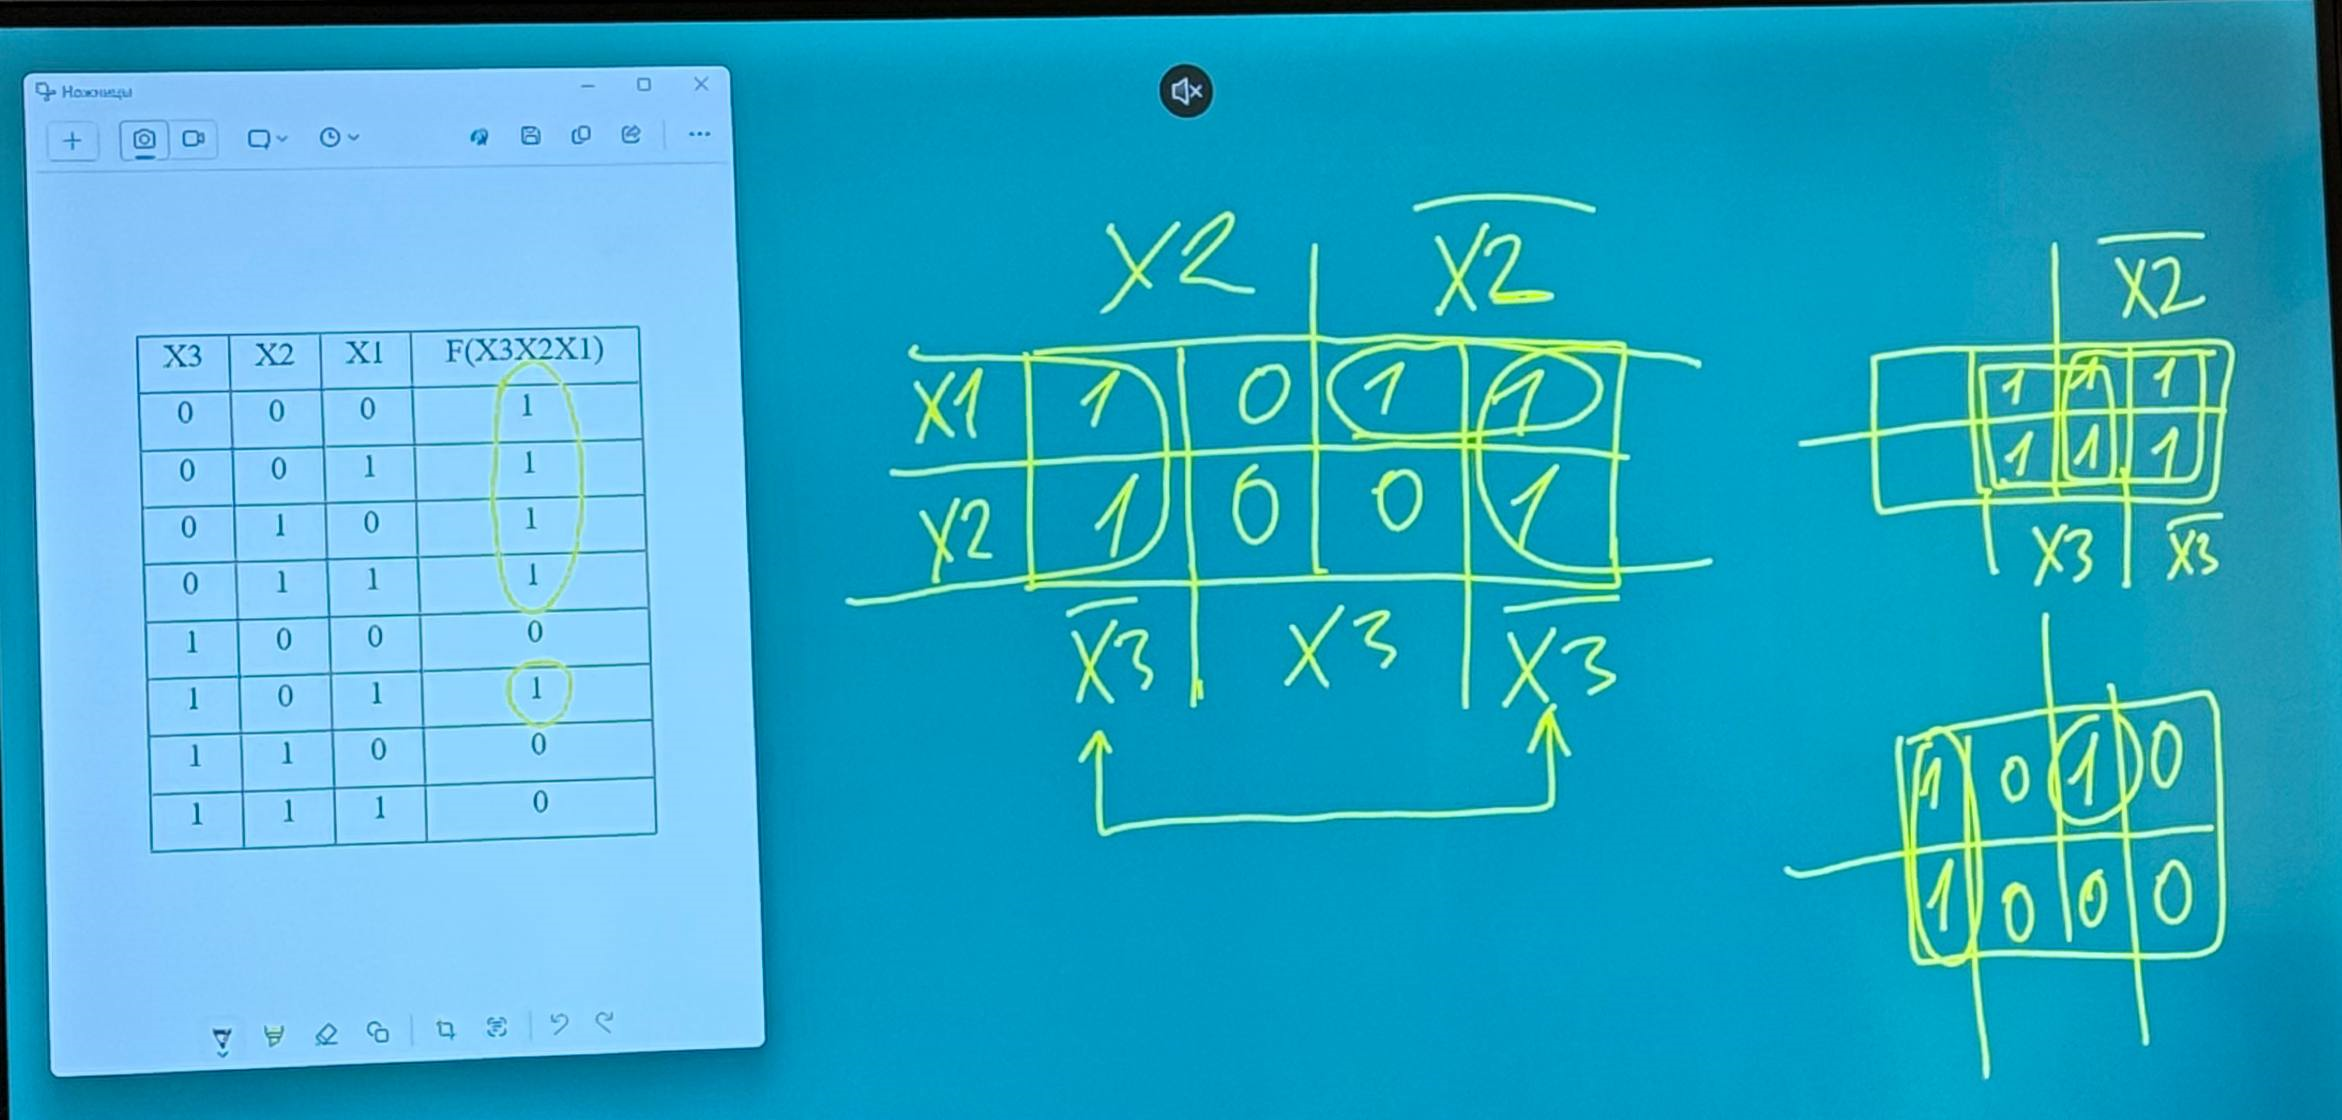 Ножницы
X3 X2 X1 F(X3X2X1)
0 0 0 1
0 0 1 1
0 1 0 1
0 1 1 1
1 0 0 0
1 0 1 1
1 1 0 0
1 1 1 0
X2 X̅2̅
X1 1 0 1 1
X2 1 0 0 1
X̅3̅ X3 X̅3̅
X̅2̅
1 1 1
1 1 1
X3 X̅3̅
1 0 1 0
1 0 0 0